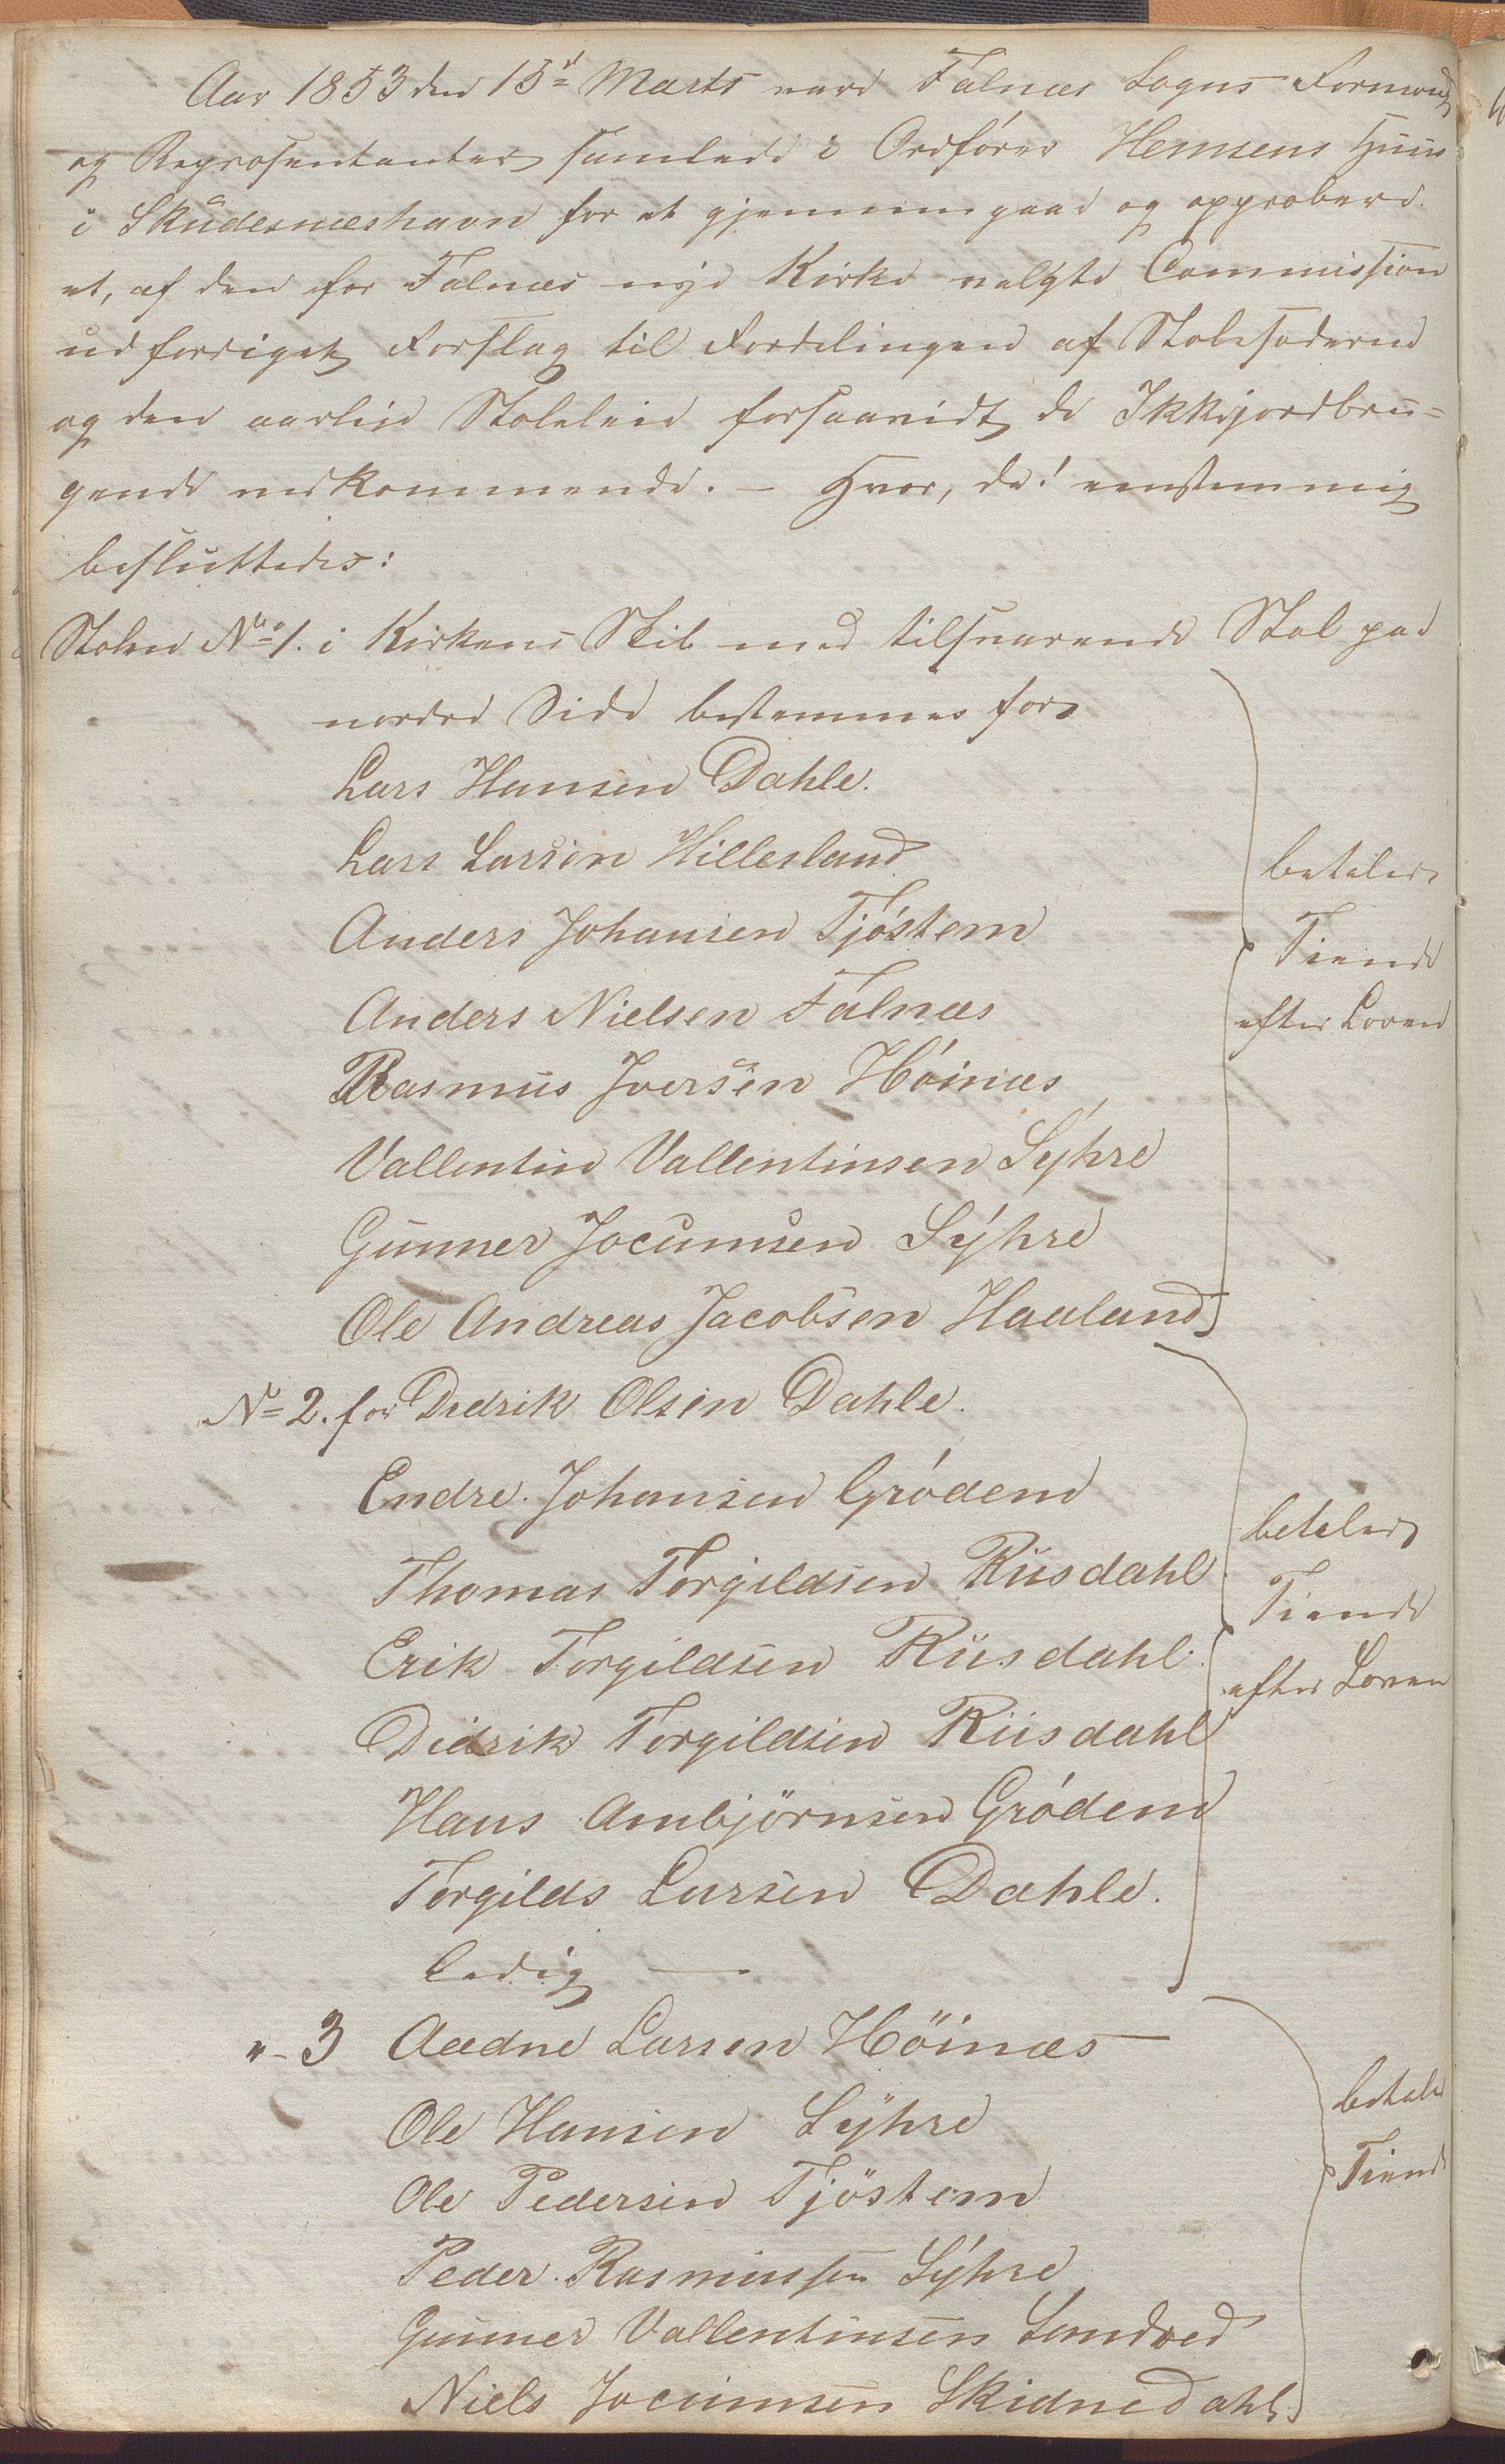 Aar 1853 den 15d Marts vare Falnæs Sogns Formænd
og Repræsentanter samlede i Ordförer Hemsens Huus
i Skudesnæshavn for at gjennemgaae og approbere
et, af den for Falnæs nye Kirke valgte Commission
udfærdiget Forslag til Fordelingen af Stolesæderne
og den aarlige Stoleleie forsaavidt de Ikkejordbru-
gende vedkommende. – Hvor, da! eenstemmig
besluttedes:
Stolen No 1. i Kirkens Skib med tilsvarende Stol paa
nordre Side bestemmes for
Lars Hansen Dahle.
Lars Larsen Hillesland
Anders Johansen Tjöstem
Anders Nielsen Falnæs
Rasmus Iversen Höinæs
Vallentin Vallentinsen Syhre
Gunner Jocumsen Syhre
Ole Andreas Jacobsen Haaland
betaler
Tiende
efter Loven
No 2. for Didrik Olsen Dahle.
Endre Johansen Grödem
Thomas Torgildsen Riisdahl
Erik Torgildsen Riisdahl
Didrik Torgildsen Riisdahl
Hans Ambjörnsen Grödem
Torgilds Larsen Dahle.
ledig —
betaler
Tiende
efter Loven
" - 3 Aadne Larsen Höinæs
Ole Hansen Syhre
Ole Pedersen Tjöstem
Peder Rasmussen Syhre
Gunner Vallentinsen Sandved
Niels Jocumsen Skidnedahl
betale
Tiende